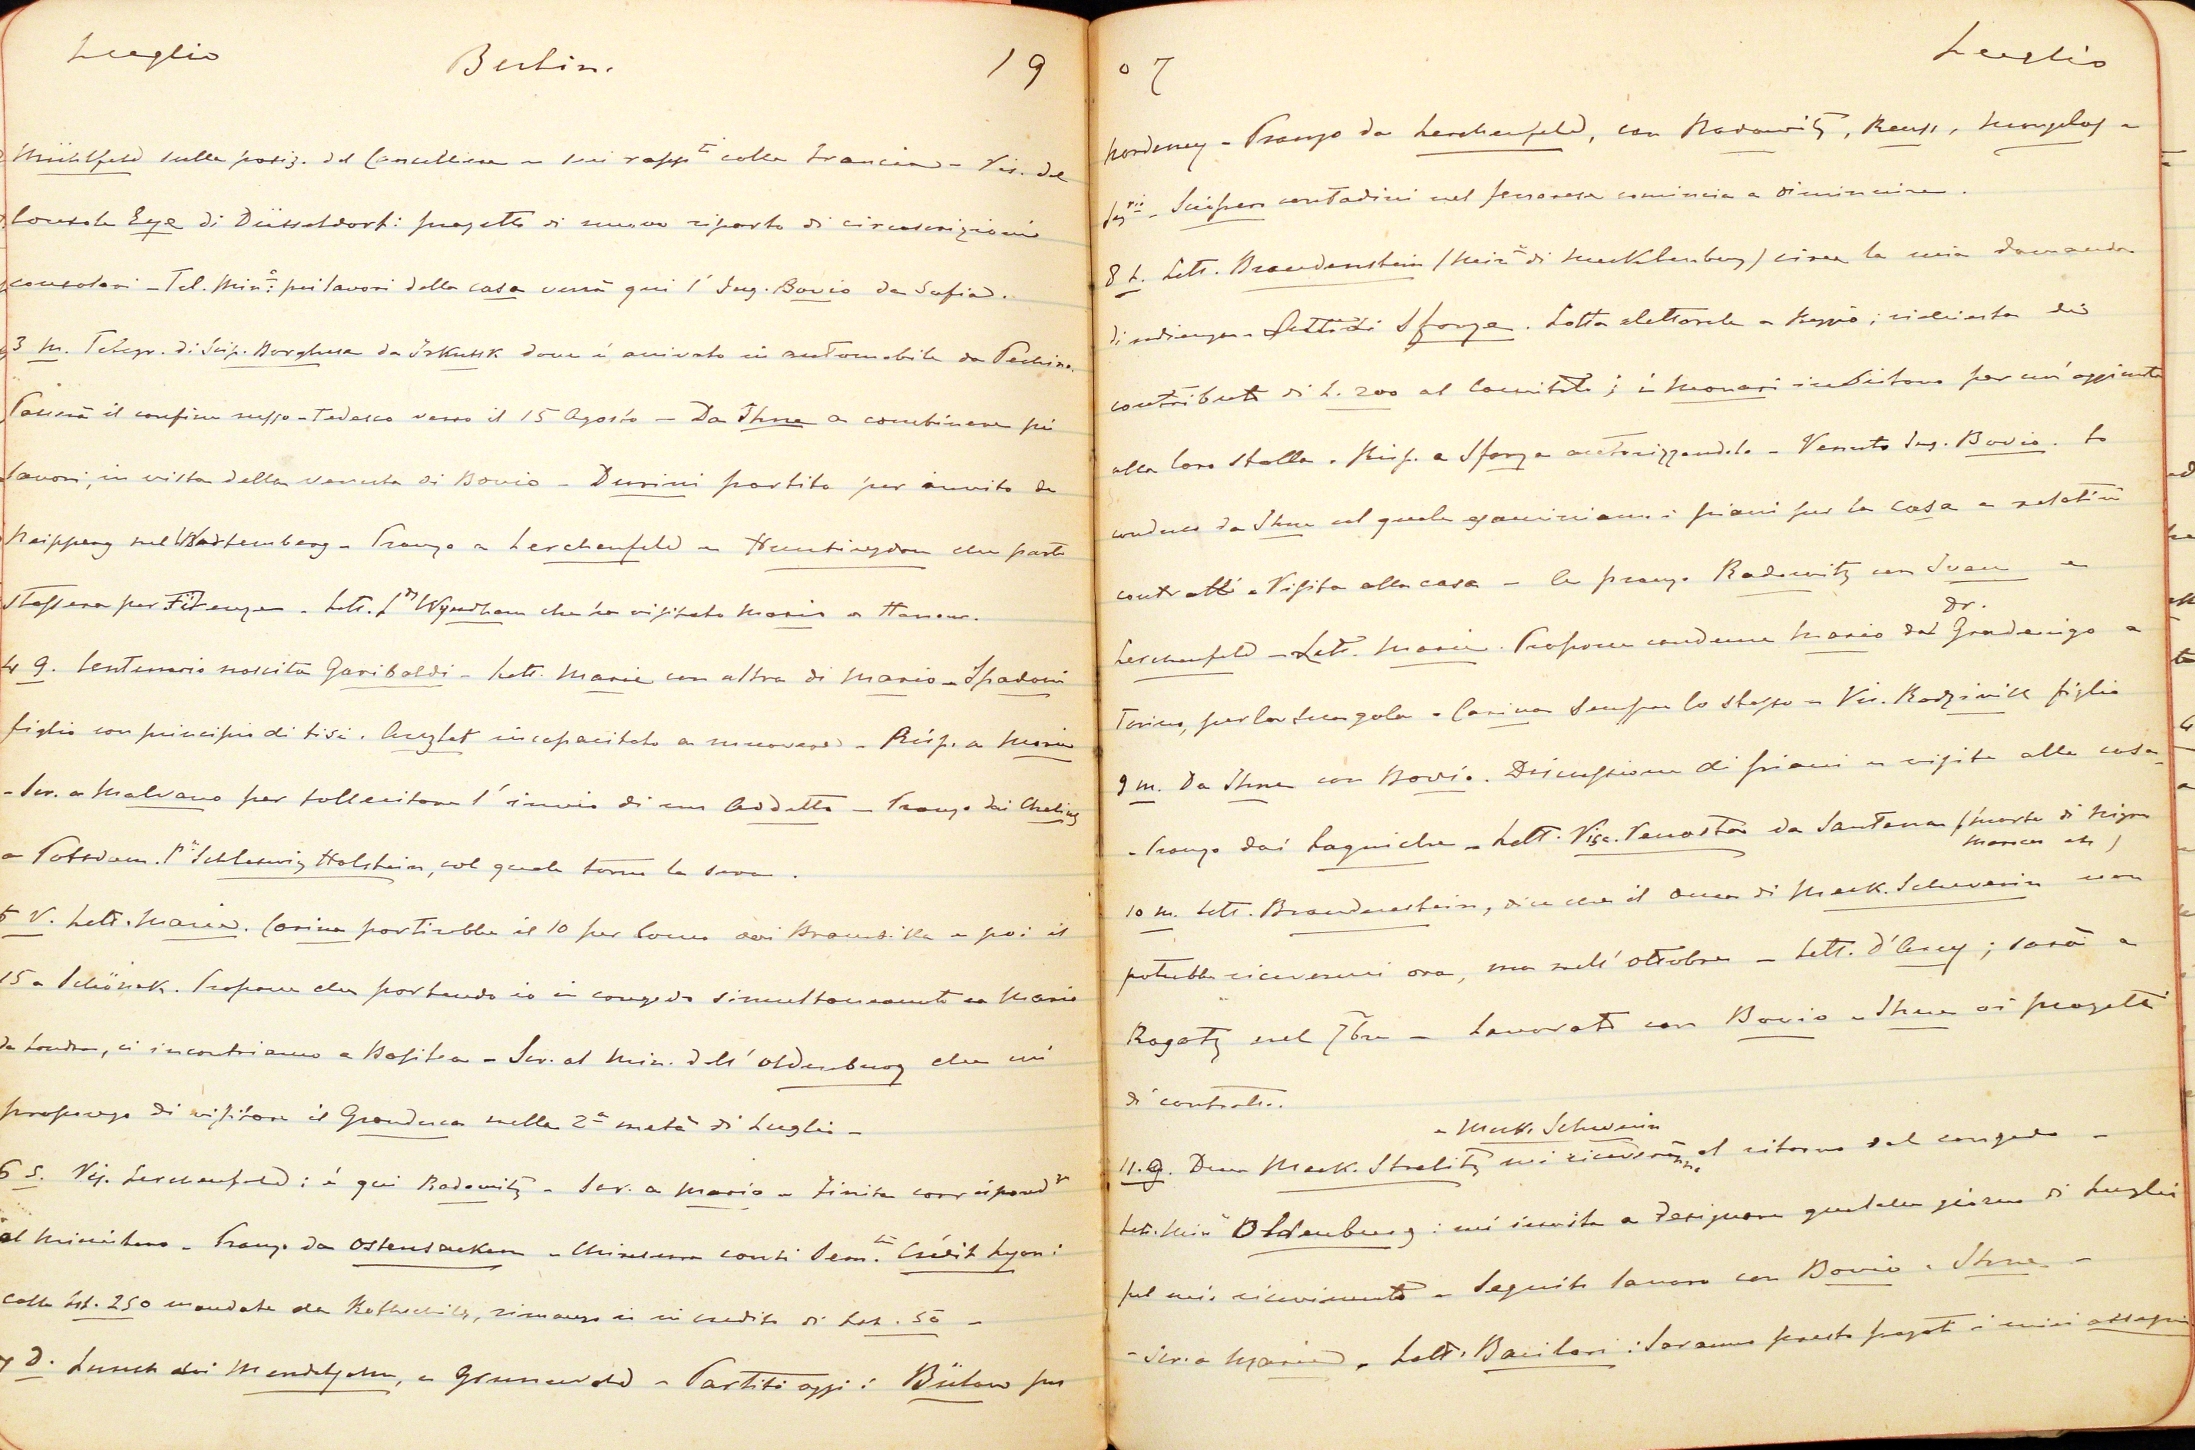 Luglio Berlin. 19
Mühlfeld sulla posiz. del Cancelliere e sui rapp.ti colla Francia - Vis. del
Console Eye di Düsseldorf: progetto di nuovo riparto di circoscrizioni
consolari - Tel. Min.o: pei lavori della casa verrà qui l'Ing. Bovio da Sofia.
3 m. Telegr. di Scip. Borghese da Irkutsk dove è arrivato in automobile da Pechino.
Passerà il confine russo-tedesco verso il 15 Agosto - Da Ihne a combinare pei
lavori, in vista della venuta di Bovio - Durini partito per invito da
Neipperg nel Würtemberg - Pranzo a Lerchenfeld e Huntingdon che parte
stassera per Firenze - Lett. Wyndham che ha visitato Mario a Harrow.
4 g. Centenario nascita Garibaldi - Lett. Maria con altra di Mario - Spadoni
figlio con principio di tisi. incapacitato a muoversi - Risp. a Maria
- Scr. a Malvano per sollecitare l'invio di un Addetto - Pranzo dai Chelius
a Potsdam. Schleswig Holstein, col quale torno la sera.
5 V. Lett. Maria. Carina partirebbe il 10 per Como dai Brambilla e poi il
15 a Schöneck. Propone che partendo io in congedo simultaneamente a Mario
da Londra, ci incontriamo a Basilea - Scr. al Min. dell'Oldenburg che mi
propongo di visitare il Granduca nella 2a metà di Luglio -
6 S. Vis. Lerchenfeld: è qui Radowitz - Scr. a Mario - Finita corrispond.za
al Ministero - Pranzo da Ostensacken - Chiusura conti Sem. Crédit Lyon:
colle Lst. 250 mandate da Rothschild, rimango in credito di Lst. 50 -
7 D. Lunch dai Mendelssohn, a Grunewald - Partiti oggi i Bülow per
07 Luglio
Norderney - Pranzo da Lerchenfeld, con Radowitz, Reuss,
Sciopero contadini nel ferrarese comincia a diminuire.
8 L. Lett. Brandenstein (Min.o di Mecklenburg) circa la mia domanda
di udienza - Lett. di Sforza. Lotta elettorale a Reggio; richiesta di
contributo di L. 200 al Comitato; i Monari insistono per un'aggiunta
alla loro stalla. Risp. a Sforza autorizzandolo - Venuto Ing. Bovio. Lo
conduco da Ihne col quale esaminiamo i piani per la casa e relativi
contratti - Visita alla casa - A pranzo Radowitz con Ivan e
Lerchenfeld - Lett. Maria. Propone condurre Mario dal dr. Gradenigo a
Torino, per la sua gola - Carina sempre lo stesso - Vis. Radziwill figlio
9 m. Da Ihne con Bovio. Discussione di piani e visita alla casa
- Pranzo dai Laguiche - Lett. Visc. Venosta da Santena (morte di Nigra
Marocco etc)
10 m. Lett. Brandenstein, dice che il Duca di Meck. Schwerin non
potrebbe ricevermi ora, ma nell'ottobre - Lett. d'Ancy; sarà a
Ragatz nel 7bre - Lavorato con Bovio e Ihne ai progetti
di contratti.
11. g. Duca Meck. Strelitz e Meck. Schwerin mi riceveranno al ritorno dal congedo -
Lett. Min.o Oldenburg: mi invita a designare qualche giorno di Luglio
pel mio ricevimento - Seguito lavoro con Bovio e Ihne -
- Scr. a Maria - Lett. Bacilari: Saranno presto pagati i miei assegni